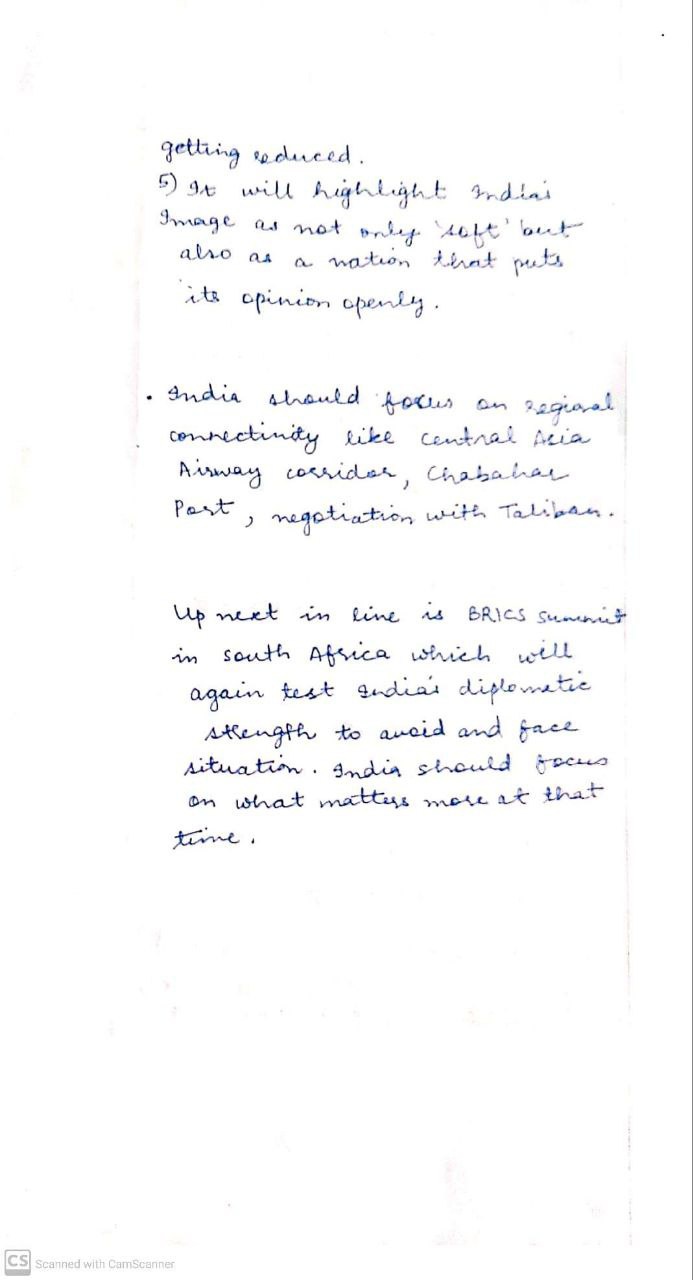 getting reduced.
5) It will highlight India's
Image as not only 'soft' but
also as a nation that puts
its opinion openly.
• India should focus on regional
connectivity like central Asia
Airway corridor, Chabahar
Port, negotiation with Taliban.
Up next in line is BRICS summit
in south Africa which will
again test India's diplomatic
strength to avoid and face
situation. India should focus
on what matters more at that
time.
CS Scanned with CamScanner